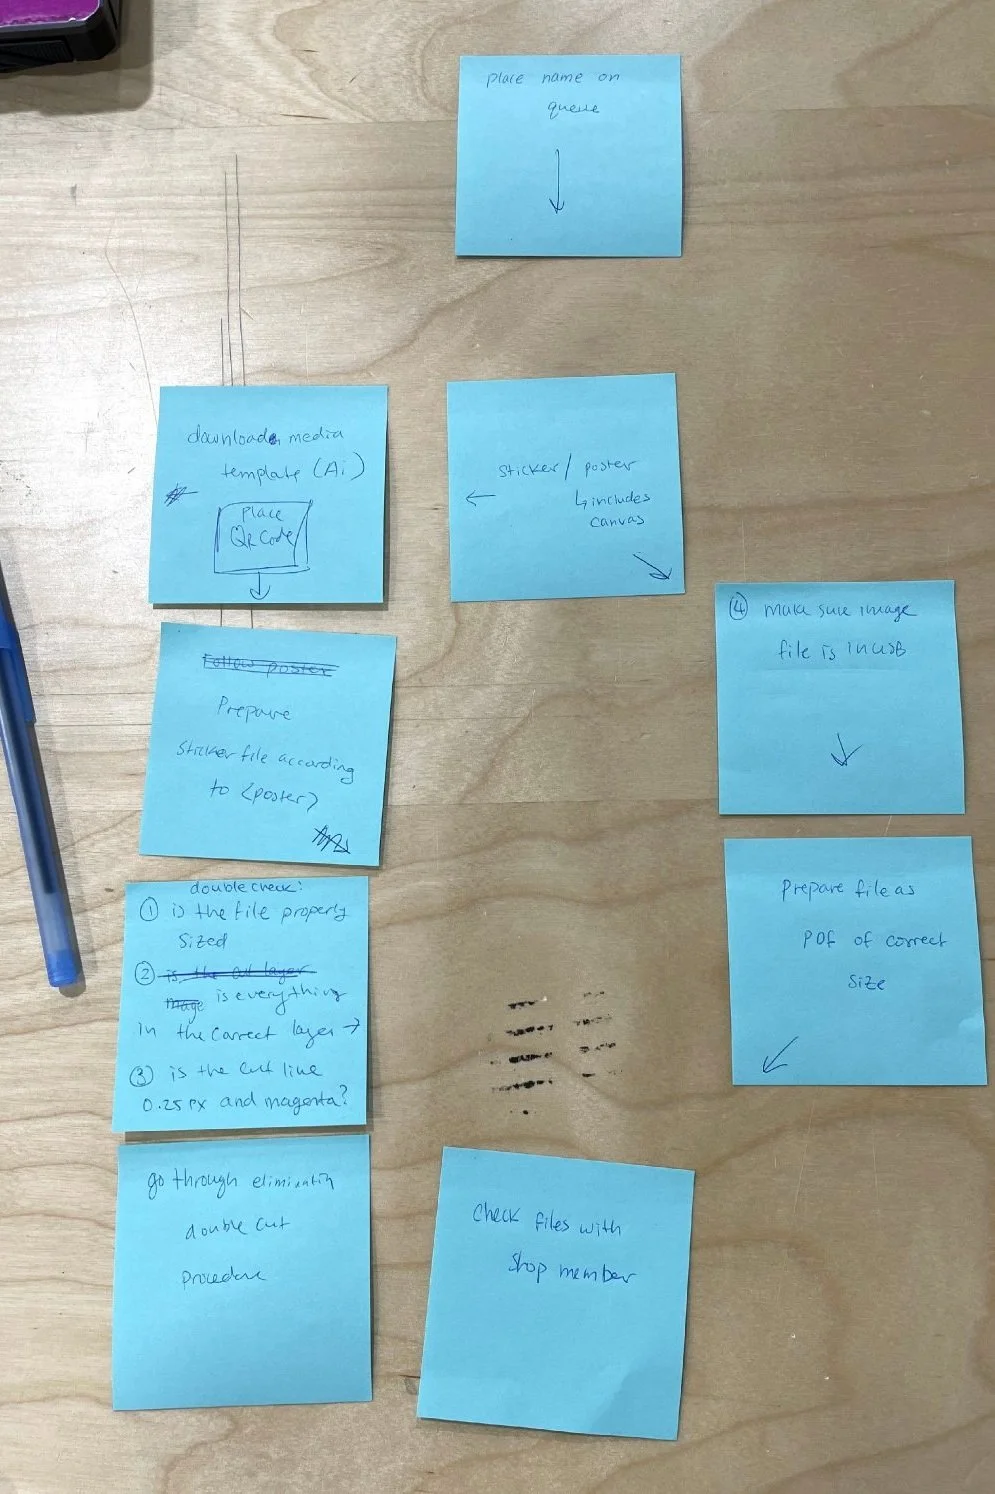 place name on
queue
downloade media
template (Ai)
place
QR code
sticker / poster
↳ includes
canvas
④ make sure image
file is in USB
Follow poster
Prepare
sticker file according
to <poster>
Prepare file as
PDF of correct
size
double check:
① is the file properly
sized
② is the cut layer
image is everything
in the correct layer →
③ is the cut line
0.25 px and magenta?
go through elimination
double cut
procedure
check files with
shop member